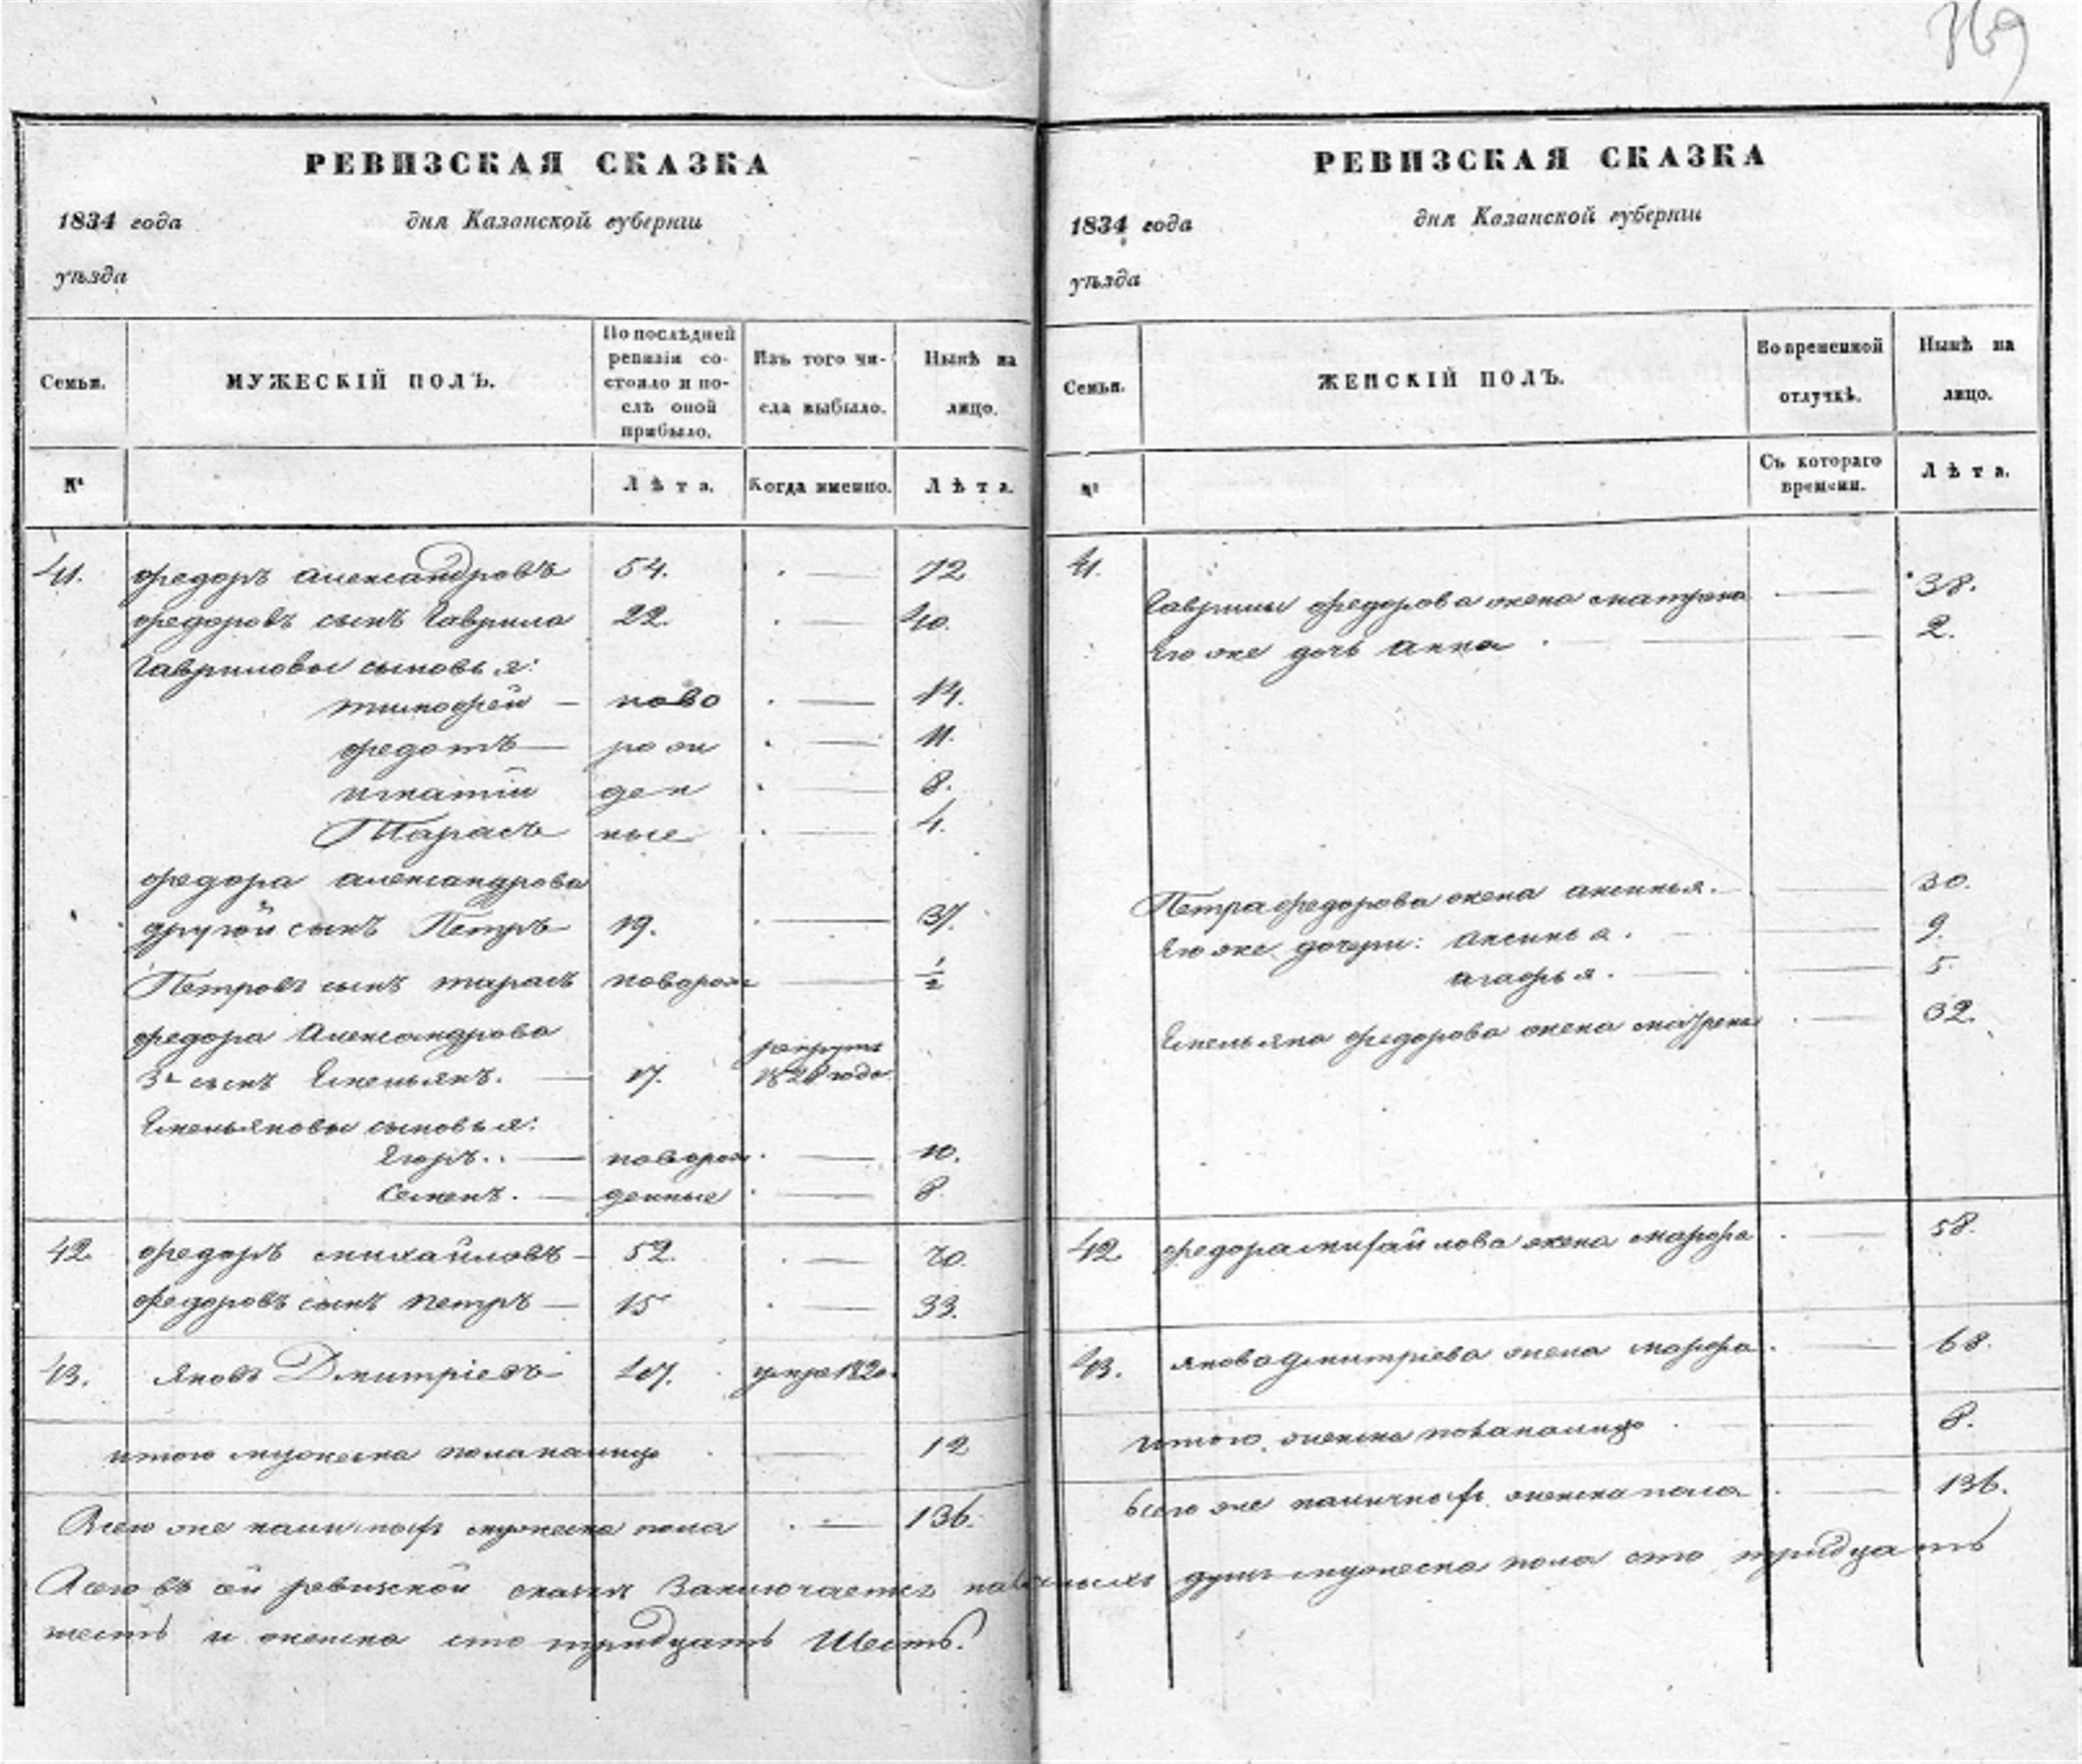 369
РЕВИЗСКАЯ СКАЗКА
1834 года дня Казанской губернiи
уѣзда
Семьи. МУЖЕСКІЙ ПОЛЪ. По послѣдней ревизiи состояло и послѣ оной прибыло. Изъ того числа выбыло. Нынѣ на лицо.
№ Лѣта. Когда именно. Лѣта.
41. федоръ александровъ 54. 72
федоровъ сынъ гаврила 22. 40.
гавриловы сыновья:
тимофей ново 14.
федотъ рож 11.
игнатiй ден 8.
Тарасъ ные 4.
федора александрова
другой сынъ Петръ 19. 37.
Петровъ сынъ тарасъ новорож 1/2
федора Александрова
3й сынъ Емельянъ. 17. рекрутъ 182 года
Емельяновы сыновья:
Егоръ. новорож 10.
Семенъ. денные 8.
42. федоръ михайловъ 52. 70.
федоровъ сынъ петръ 15 33.
43. яковъ Дмитрiевъ 47. умре 1820.
итого мужеска пола налицо 12
Всего же наличныхъ мужеска пола 136.
РЕВИЗСКАЯ СКАЗКА
1834 года дня Казанской губернiи
уѣзда
Семьи. ЖЕНСКІЙ ПОЛЪ. Во временной отлучкѣ. Нынѣ на лицо.
№ Съ котораго времени. Лѣта.
41. Гаврилы федорова жена матрена 38.
Его же дочь анна 2.
Петра федорова жена аксинья. 30.
Его же дочери: аксинья. 9.
агафья. 5.
Емельяна федорова жена матрена 32.
42. федора михайлова жена марфа 58.
43. якова дмитрiева жена марфа 68.
итого женска пола налицо 8.
всего же наличныхъ женска пола 136.
Всего въ сей ревизской сказкѣ Заключается наличныхъ душъ мужеска пола сто тридцать
шесть и женска сто тридцать Шесть.